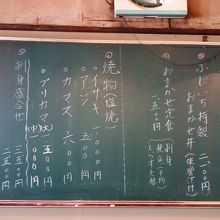 ふじいち特製
おまかせ丼(味噌汁付)
二、〇〇〇円
④おまかせ定食
刺身
焼魚(干物)
しらす大根
一五〇〇円
焼物(塩焼)
〇イサキ
〇アジ
〇カマス 六〇〇円
〇ブリカマ(中) 五〇〇円
(大)
刺身盛合せ
三五〇〇円
二五〇〇円